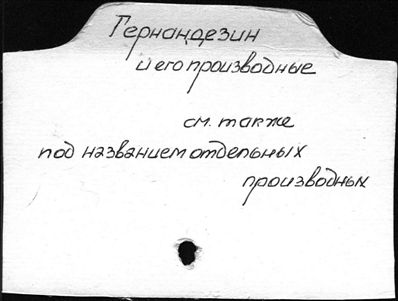 Гернандезин
и его производные
см. также
под названием отдельных
производных